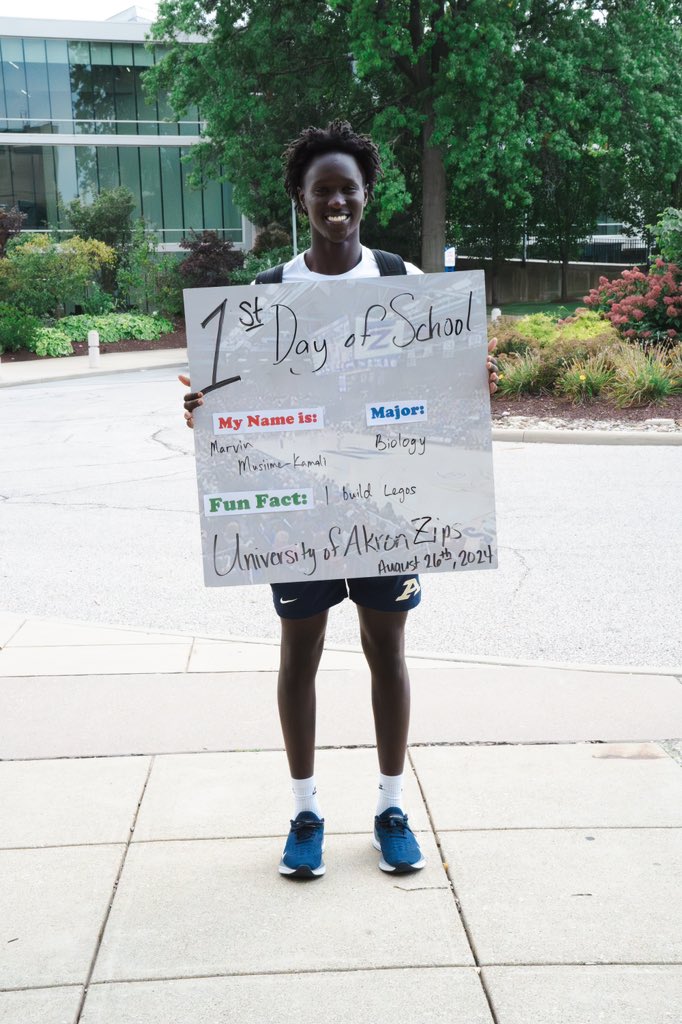 1st Day of School
My Name is:
Major:
Marvin
Musiime-Kamali
Biology
Fun Fact: I build Legos
University of Akron Zips
August 26th, 2024
A